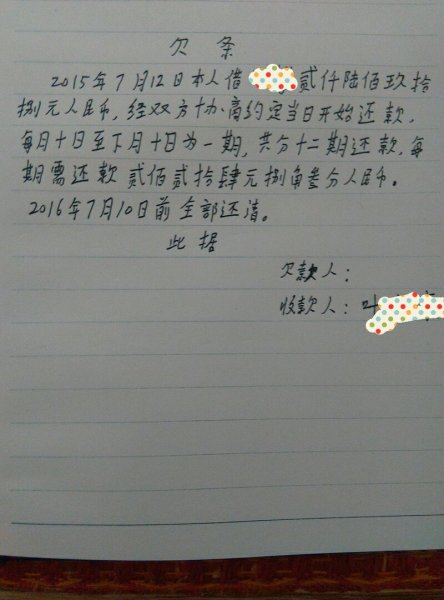 欠条
2015年7月12日本人借 贰仟陆佰玖拾
捌元人民币，经双方协商约定当日开始还款，
每月十日至下月十日为一期，共分十二期还款，每
期需还款 贰佰贰拾肆元捌角叁分人民币。
2016年7月10日前全部还清。
此据
欠款人：
收款人：叶